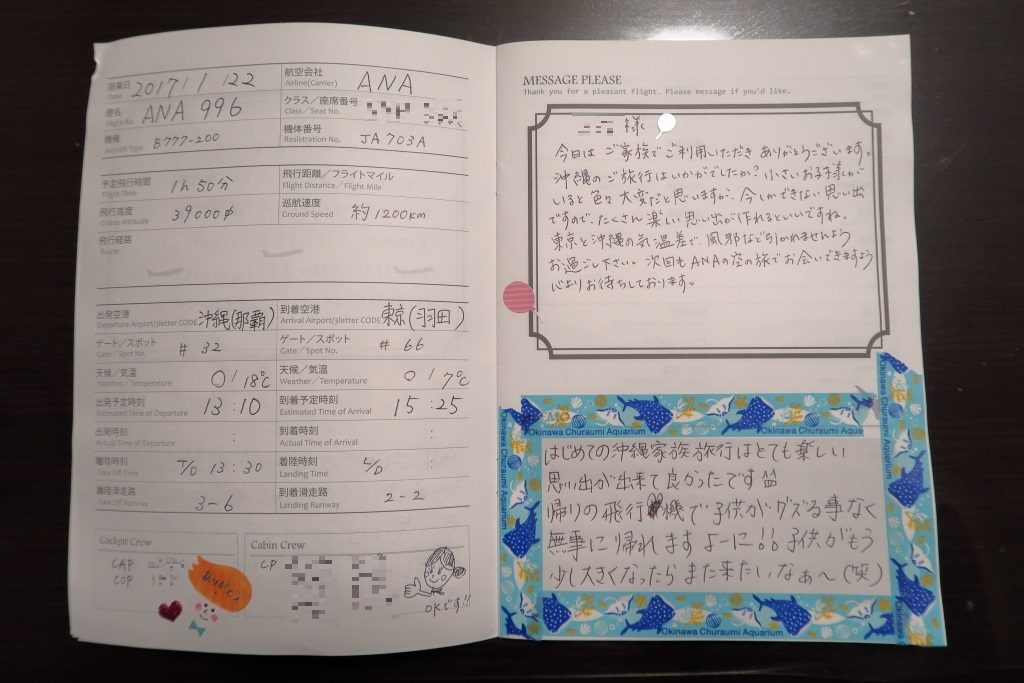 搭乗日 2017 / 1 / 22 航空会社 ANA
Date Airline(Carrier)
便名 ANA 996 クラス／座席番号
Flight No. Class／Seat No.
機種 B777-200 機体番号 JA703A
Aircraft Type Resistration No.
予定飛行時間 1h 50分 飛行距離／フライトマイル
Flight Time Flight Distance／Flight Mile
飛行高度 39000ft 巡航速度 約1200km
Cruise Altitude Ground Speed
飛行経路
Route
出発空港 沖縄(那覇) 到着空港 東京(羽田)
Departure Airport/3letter CODE Arrival Airport/3letter CODE
ゲート／スポット # 32 ゲート／スポット # 66
Gate／Spot No. Gate／Spot No.
天候／気温 ○ / 18℃ 天候／気温 ○ / 7℃
Weather／Temperature Weather／Temperature
出発予定時刻 13:10 到着予定時刻 15:25
Estimated Time of Departure Estimated Time of Arrival
出発時刻 : 到着時刻 :
Actual Time of Departure Actual Time of Arrival
離陸時刻 T/O 13:30 着陸時刻 L/D :
Take Off Time Landing Time
離陸滑走路 3-6 到着滑走路 2-2
Take Off Runway Landing Runway
Cockpit Crew
CAP
COP
ありがとう
Cabin Crew
CP
OKです!!
MESSAGE PLEASE
Thank you for a pleasant flight. Please message if you'd like.
様
今日は ご家族でご利用いただき ありがとうございます。
沖縄のご旅行はいかがでしたか? 小さいお子様が
いると色々大変だと思いますが、今しかできない思い出
ですので、たくさん楽しい思い出が作れるといいですね。
東京と沖縄の気温差で、風邪など引かれませんよう
お過ごし下さい。次回もANAの空の旅でお会いできますよう
心よりお待ちしております。
MEMO
Okinawa Churaumi Aquarium
Okinawa Churaumi Aquarium
はじめての沖縄家族旅行はとても楽しい
思い出が出来て良かったです
帰りの飛行機で子供がグズる事なく
無事に帰れますよーに!! 子供がもう
少し大きくなったらまた来たいなぁ～(笑)
Okinawa Churaumi Aquarium
Okinawa Churaumi Aquarium
Okinawa Churaumi Aquarium